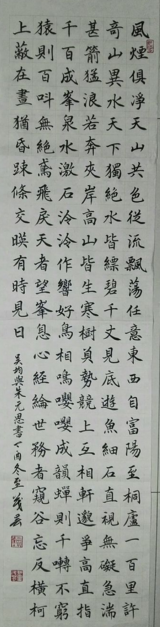 風煙俱淨天山共色從流飄蕩任意東西自富陽至桐廬一百里許
奇山異水天下獨絕水皆縹碧千丈見底遊魚細石直視無礙急湍
甚箭猛浪若奔夾岸高山皆生寒樹負勢競上互相軒邈爭高直指
千百成峯泉水激石泠泠作響好鳥相鳴嚶嚶成韻蟬則千轉不窮
猿則百叫無絕鳶飛戾天者望峯息心經綸世務者窺谷忘反橫柯
上蔽在晝猶昏疎條交暎有時見日
吴均與朱元思書丁酉冬至